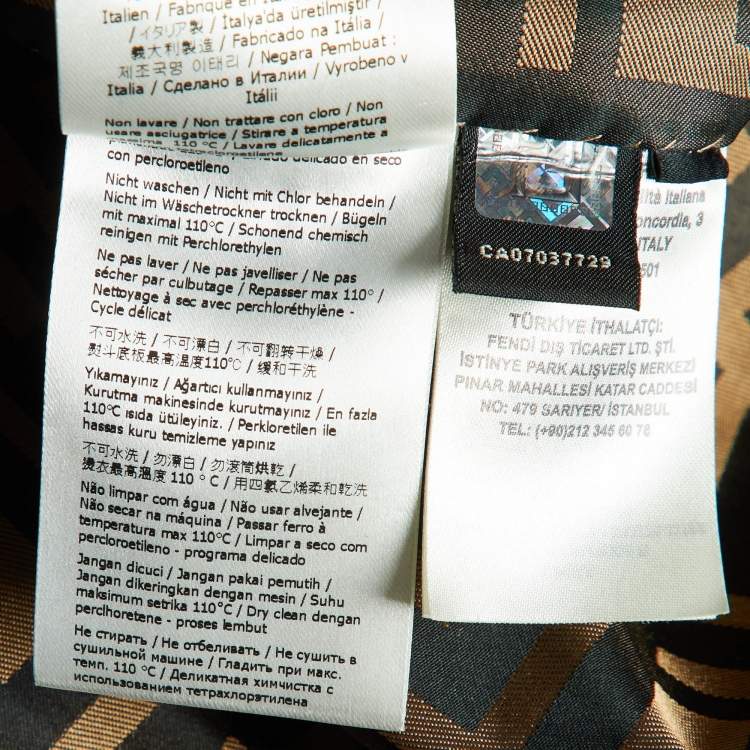 Italien / Fabriqué en It
/ イタリア製 / İtalya'da üretilmiştir /
義大利製造 / Fabricado na Itália /
제조국명 이태리 / Negara Pembuat :
Italia / Сделано в Италии / Vyrobeno v
Itálii
Non lavare / Non trattare con cloro / Non
usare asciugatrice / Stirare a temperatura
massima 110°C / Lavare delicatamente a
delicato en seco
con percloroetileno
Nicht waschen / Nicht mit Chlor behandeln /
Nicht im Wäschetrockner trocknen / Bügeln
mit maximal 110°C / Schonend chemisch
reinigen mit Perchlorethylen
Ne pas laver / Ne pas javelliser / Ne pas
sécher par culbutage / Repasser max 110° /
Nettoyage à sec avec perchloréthylène -
Cycle délicat
不可水洗 / 不可漂白 / 不可翻转干燥 /
熨斗底板最高温度110°C / 缓和干洗
Yıkamayınız / Ağartıcı kullanmayınız /
Kurutma makinesinde kurutmayınız / En fazla
110°C ısıda ütüleyiniz. / Perkloretilen ile
hassas kuru temizleme yapınız
不可水洗 / 勿漂白 / 勿滾筒烘乾 /
燙衣最高溫度 110 °C / 用四氯乙烯柔和乾洗
Não limpar com água / Não usar alvejante /
Não secar na máquina / Passar ferro à
temperatura max 110°C / Limpar a seco com
percloroetileno - programa delicado
Jangan dicuci / Jangan pakai pemutih /
Jangan dikeringkan dengan mesin / Suhu
maksimum setrika 110°C / Dry clean dengan
perclhoretene - proses lembut
Не стирать / Не отбеливать / Не сушить в
сушильной машине / Гладить при макс.
темп. 110 °C / Деликатная химчистка с
использованием тетрахлорэтилена
CA07037729
ità italiana
oncordia, 3
ITALY
501
TÜRKİYE İTHALATÇI:
FENDI DIŞ TİCARET LTD. ŞTİ.
İSTİNYE PARK ALIŞVERİŞ MERKEZİ
PINAR MAHALLESİ KATAR CADDESİ
NO: 479 SARIYER/ İSTANBUL
TEL.: (+90)212 345 60 78